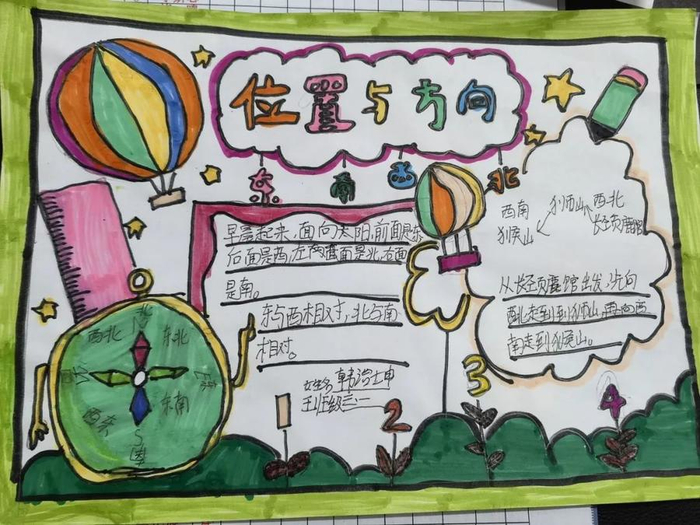 位置与方向
东 南 西 北
早晨起来,面向太阳,前面是东
后面是西,左面是北,右面
是南。
东与西相对,北与南
相对。
姓名 韩
班级 三、一
西南 狮山 西北
猴山 长颈鹿馆
从长颈鹿馆出发,先向
西北走到狮山,再向西
南走到猴山。
西北 东北
西 东
西东 东南
S
1 2 3 4